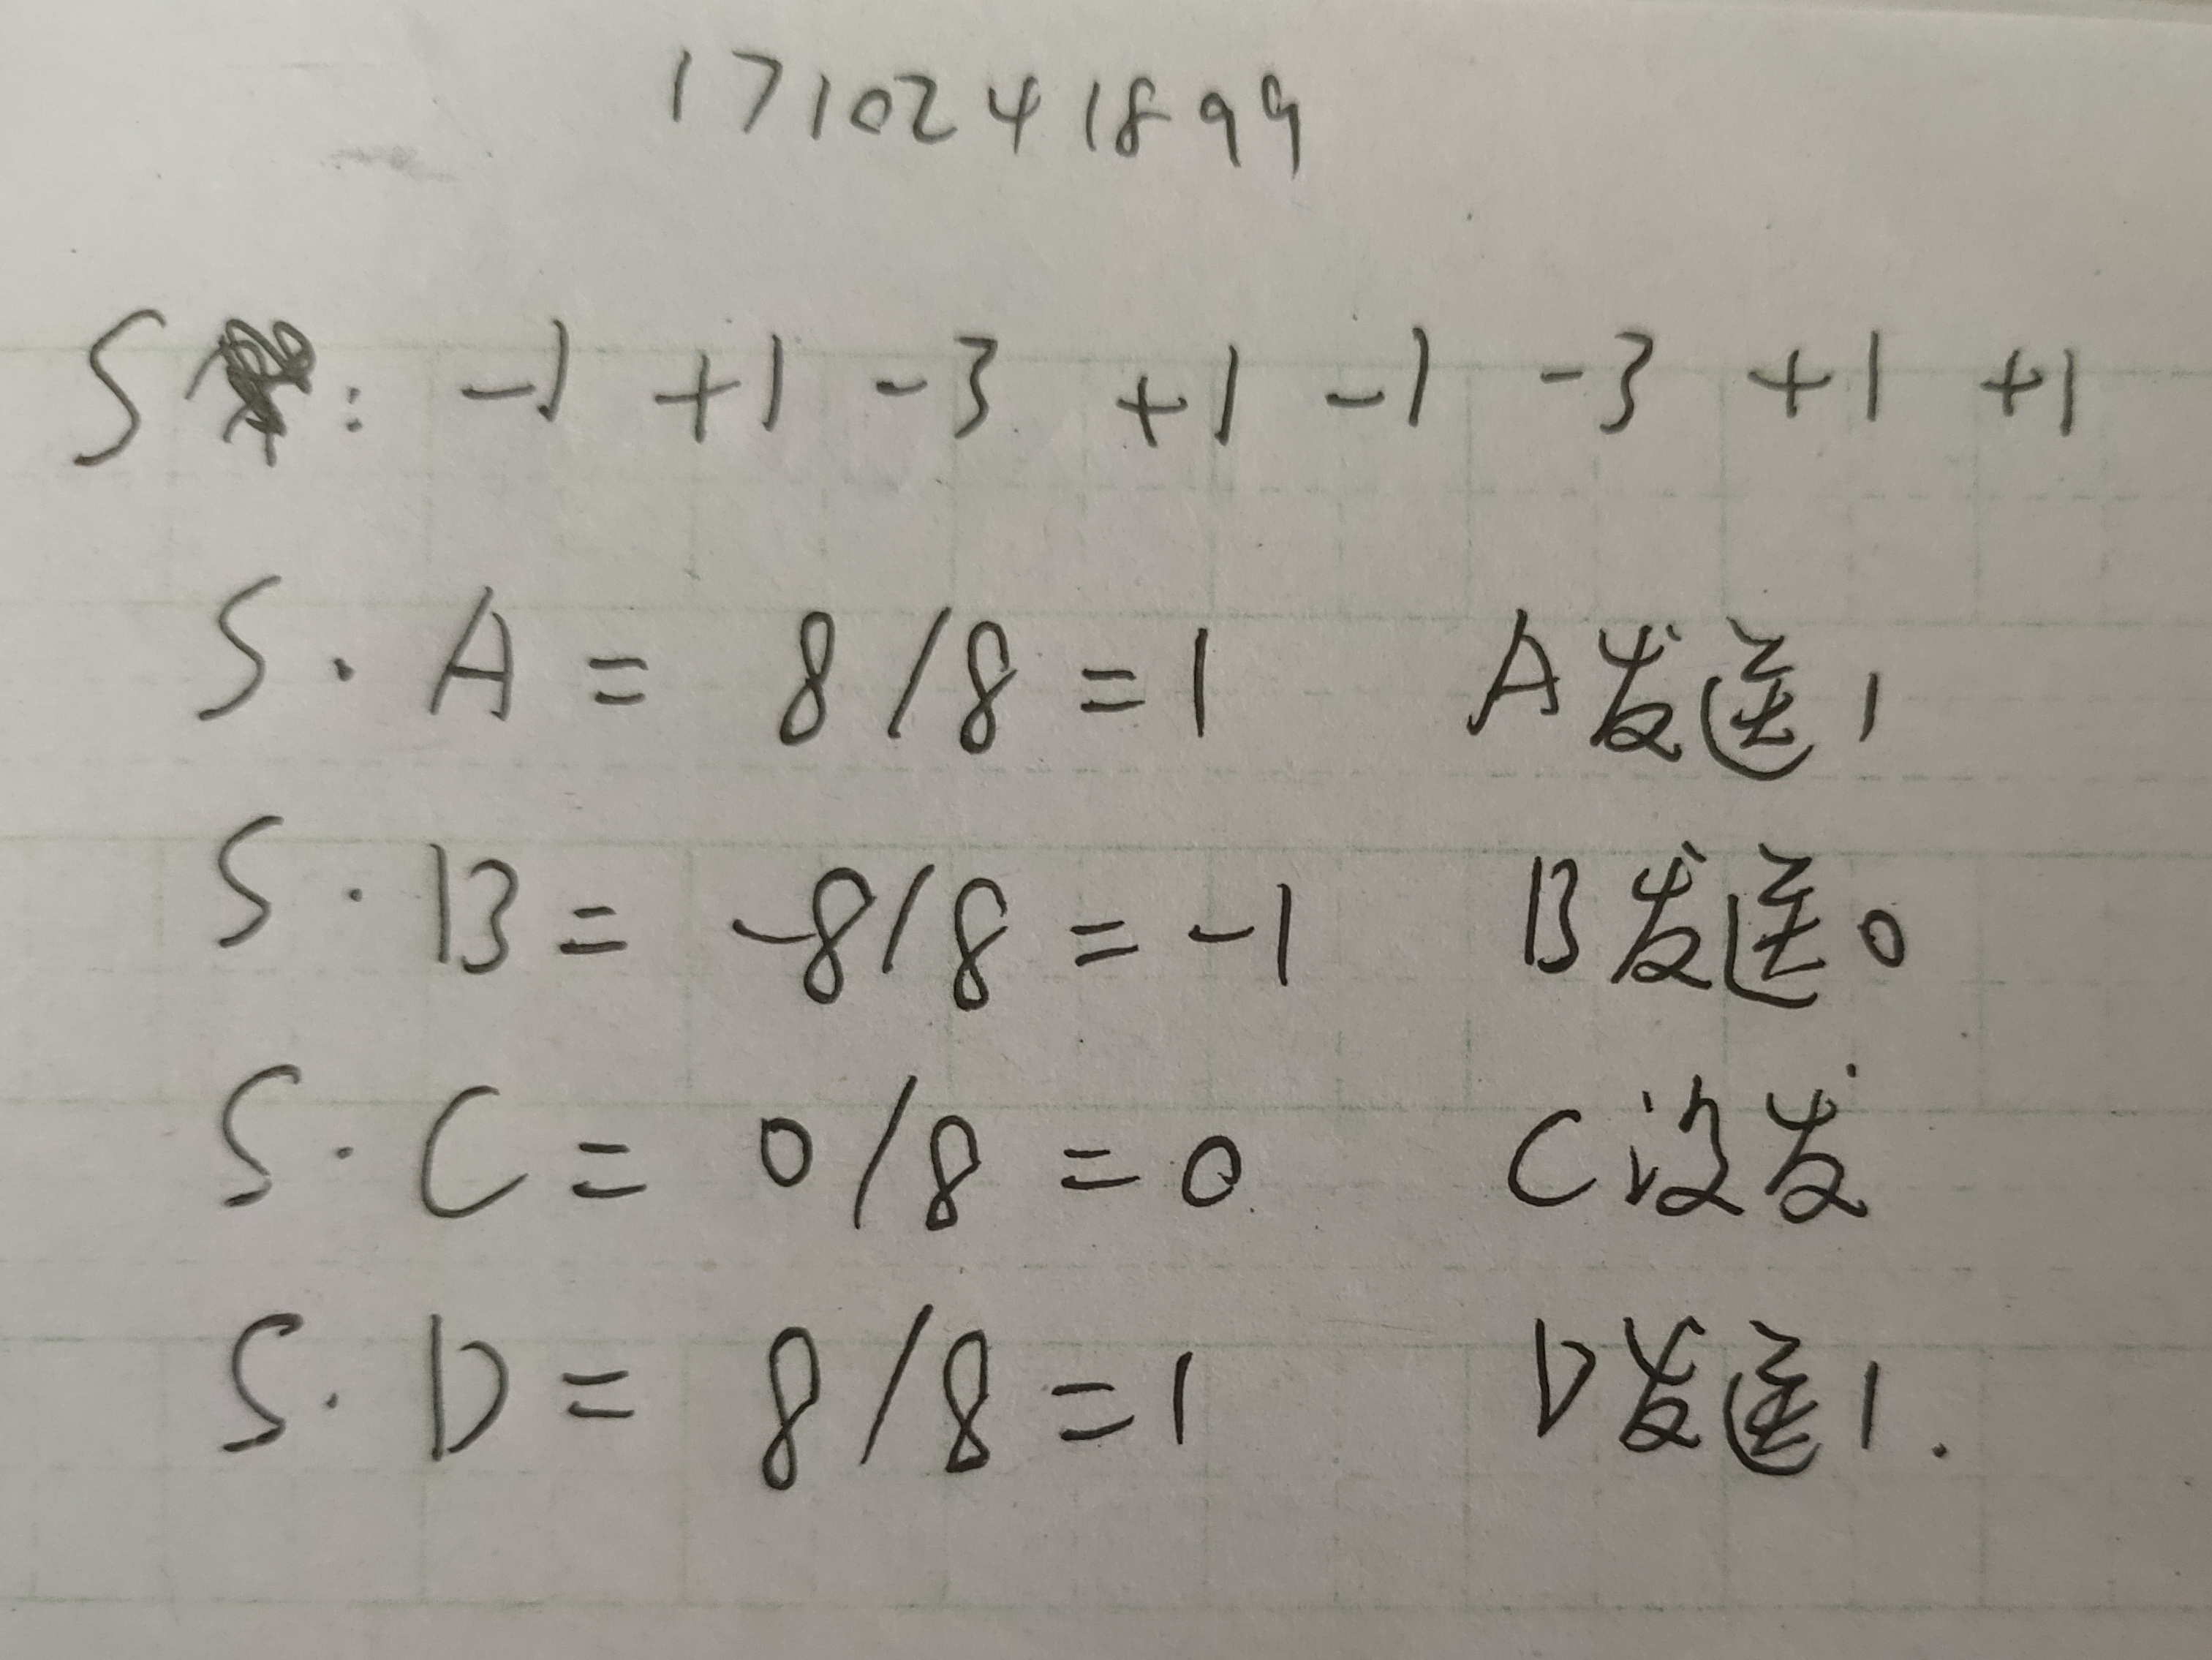 1710241899
S : -1 +1 -3 +1 -1 -3 +1 +1
S · A = 8/8 = 1 A发送1
S · B = -8/8 = -1 B发送0
S · C = 0/8 = 0 C没发
S · D = 8/8 = 1 D发送1.